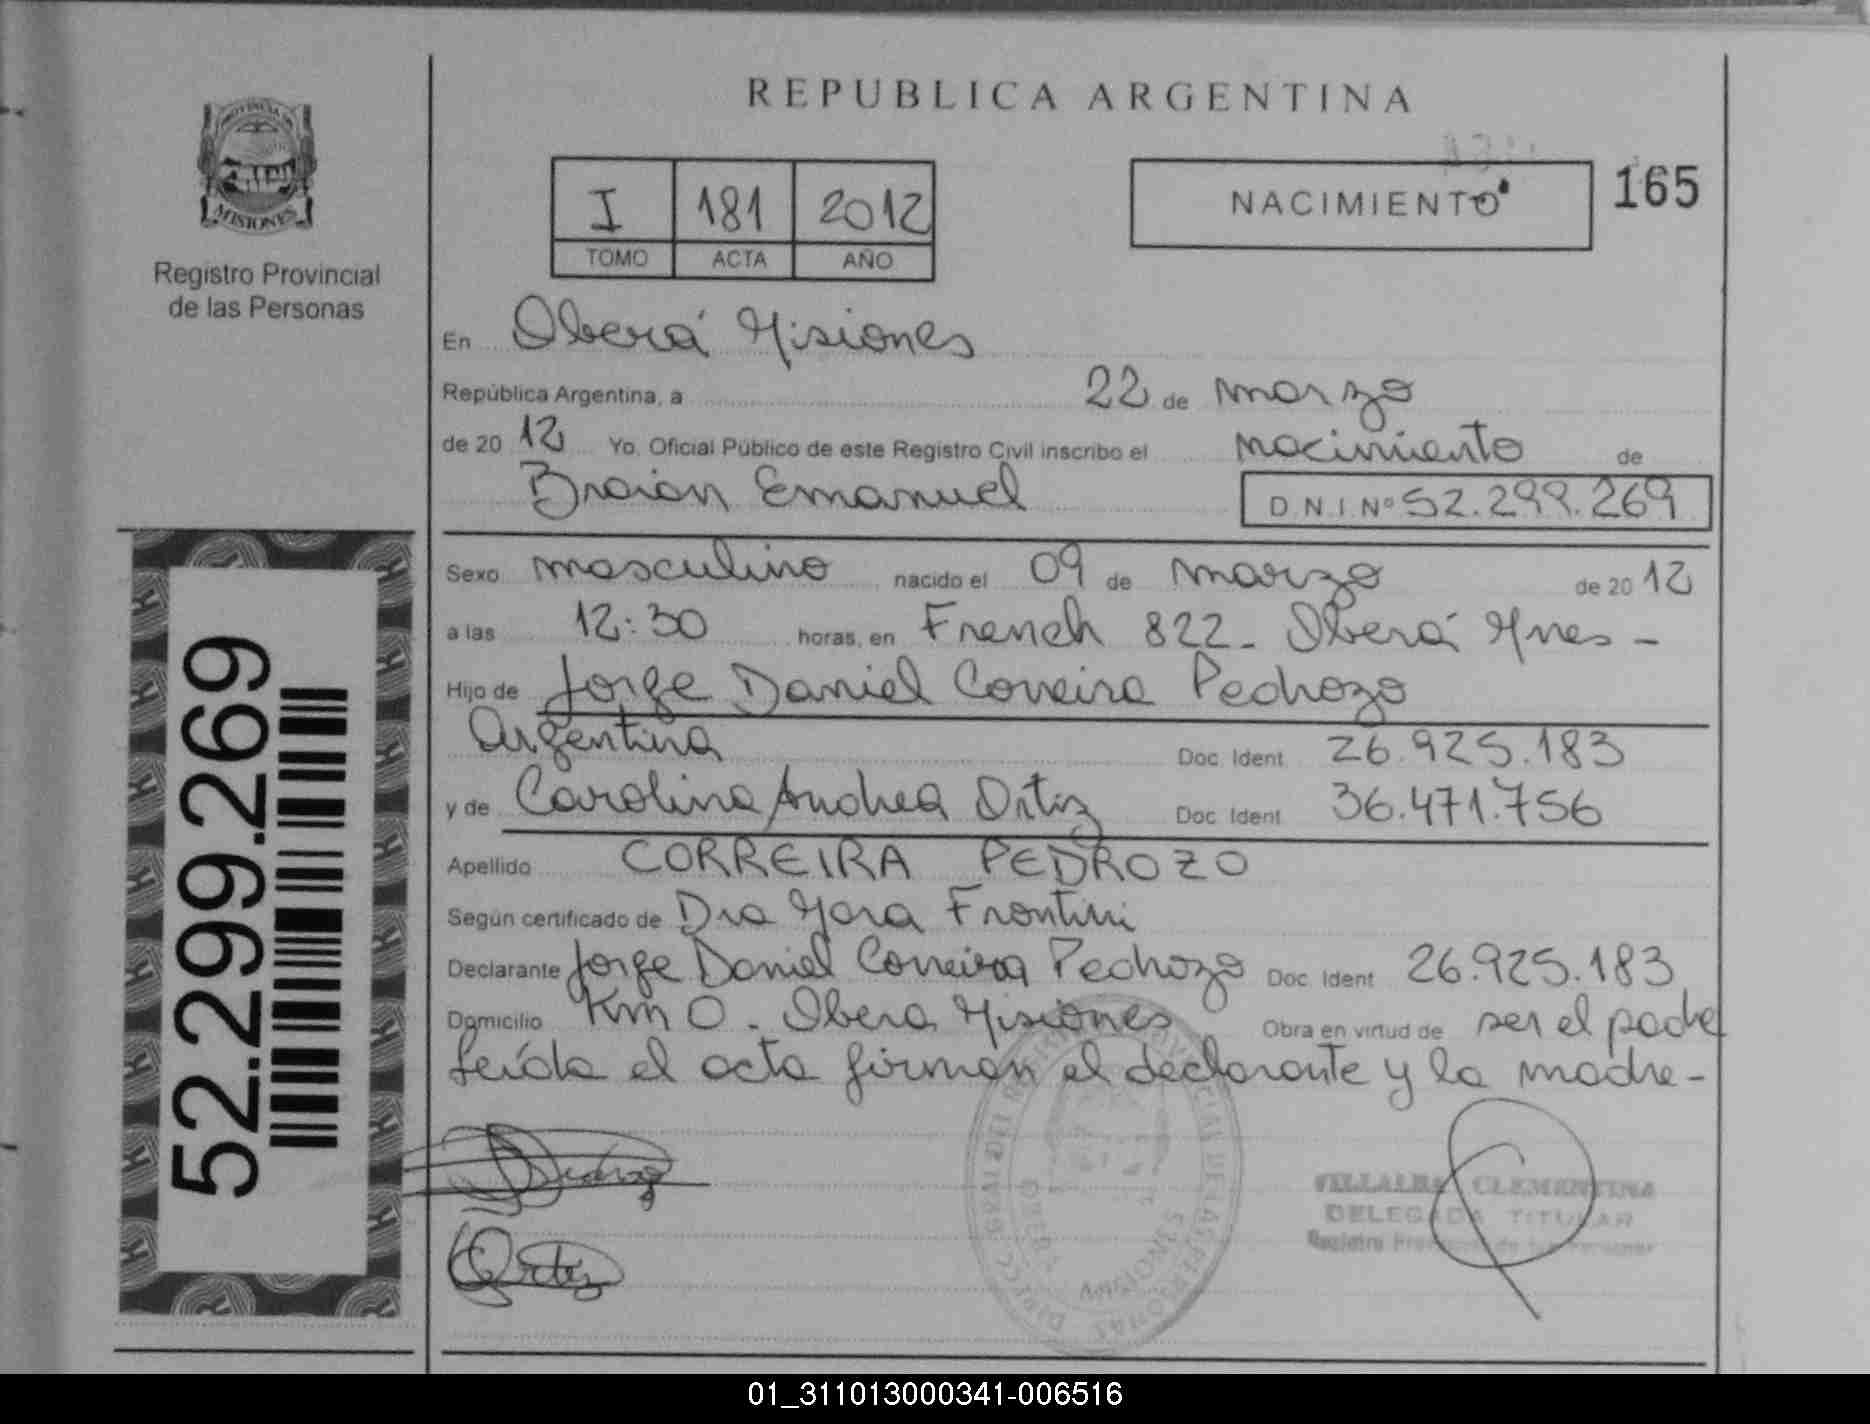 REPUBLICA ARGENTINA
PROVINCIA DE
MISIONES
Registro Provincial
de las Personas
I 181 2012
TOMO ACTA AÑO
NACIMIENTO
165
En Oberá Misiones
República Argentina, a 22 de marzo
de 20 12 Yo, Oficial Público de este Registro Civil inscribo el nacimiento de
Braian Emanuel D.N.I. Nº 52.299.269
Sexo masculino nacido el 09 de marzo de 20 12
a las 12:30 horas, en French 822 - Oberá Mnes -
Hijo de Jorge Daniel Correira Pedrozo
Argentina Doc. Ident 26.925.183
y de Carolina Andrea Ortiz Doc. Ident 36.471.756
Apellido CORREIRA PEDROZO
Según certificado de Dra Yara Frontini
Declarante Jorge Daniel Correira Pedrozo Doc. Ident 26.925.183
Domicilio Km 0 - Obera Misiones Obra en virtud de ser el padre
Leída el acta firman el declarante y la madre -
52.299.269
Ortiz
VILLALBA CLEMENTINA
DELEGADA TITULAR
Registro Provincial de las Personas
MISIONES
01_311013000341-006516